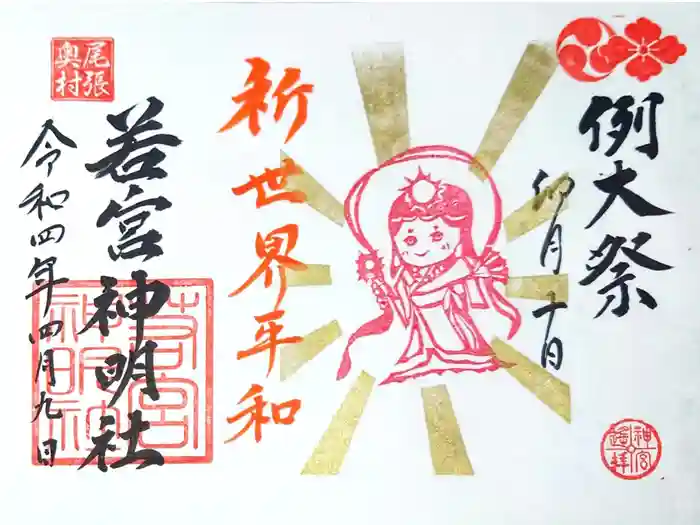 例大祭
卯月十日
祈世界平和
尾張
奥村
若宮神明社
令和四年四月九日
若宮
神明社
神宮
遥拝